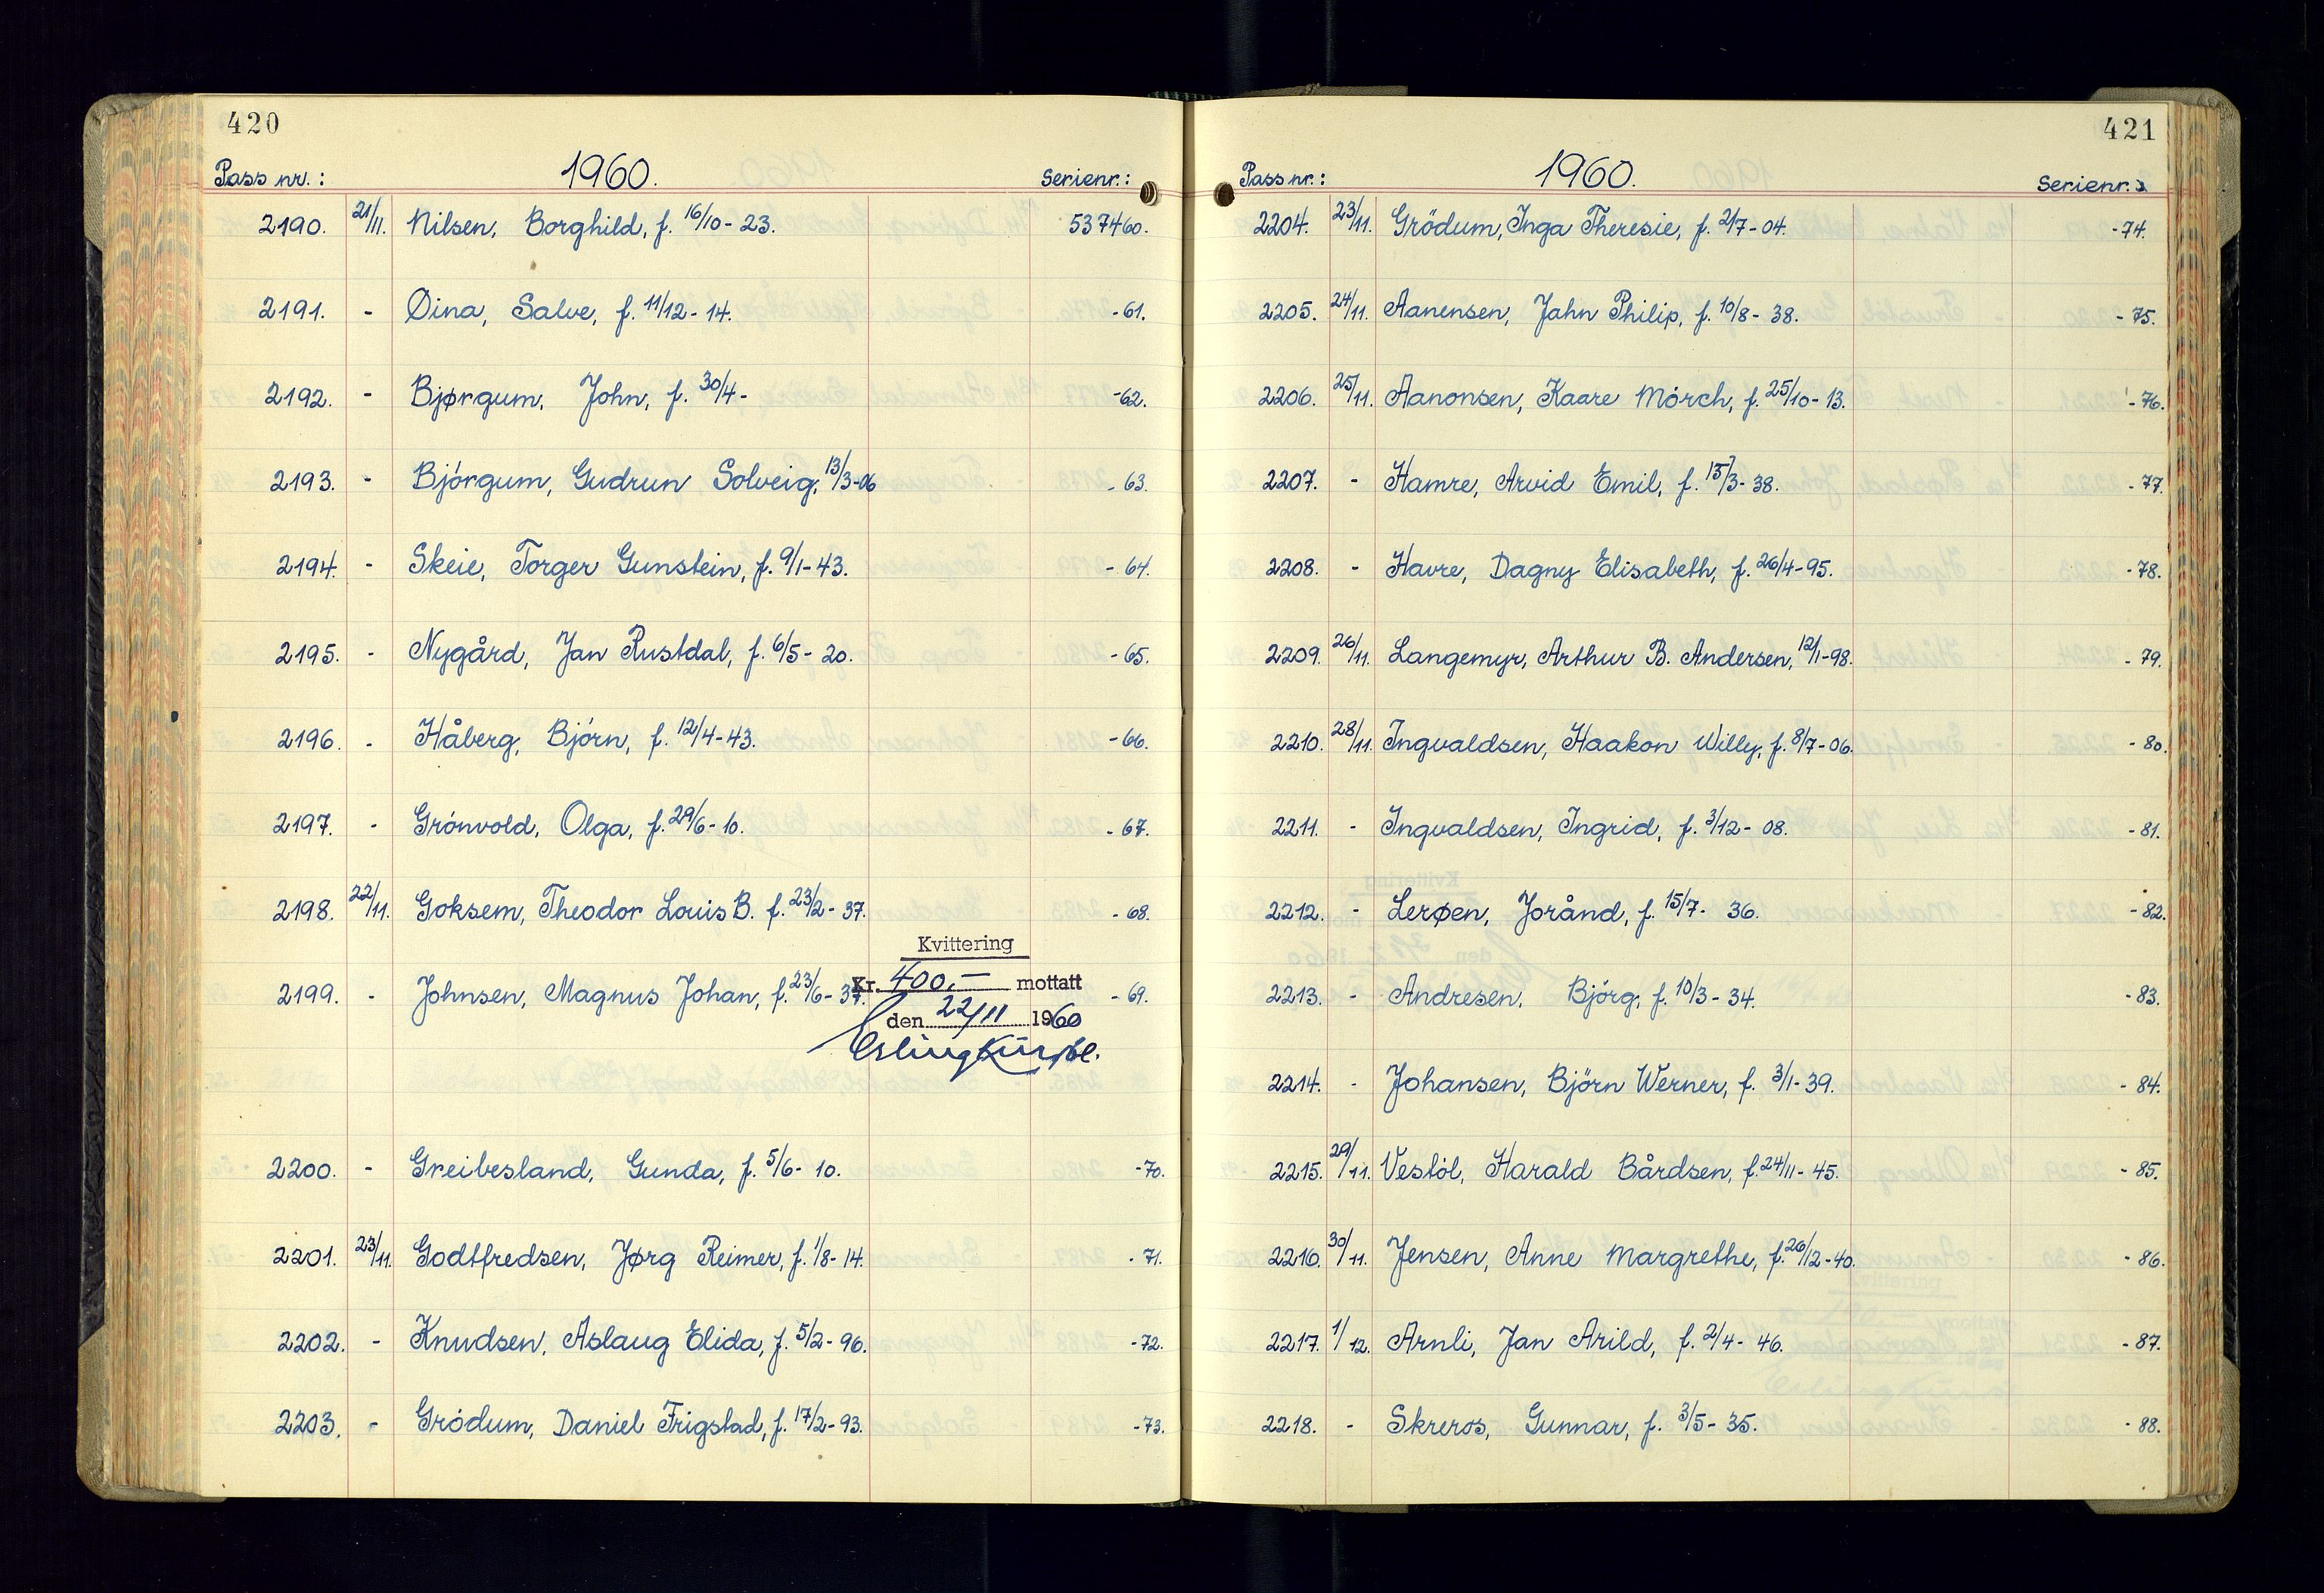 420
Pass nr.: 1960. Serienr.:
2190. 21/11. Nilsen, Borghild, f. 16/10-23. 537460.
2191. - Øina, Salve, f. 11/12-14. -61.
2192. - Bjørgum, John, f. 30/4- -62.
2193. - Bjørgum, Gudrun Solveig, 13/3-06 -63.
2194. - Skeie, Torger Gunstein, f. 9/1-43. -64.
2195. - Nygård, Jan Rustdal, f. 6/5-20. -65.
2196. - Håberg, Bjørn, f. 12/4-43. -66.
2197. - Grönvold, Olga, f. 29/6-10. -67.
2198. 22/11. Goksem, Theodor Louis B. f. 23/2-37. -68.
Kvittering
2199. - Johnsen, Magnus Johan, f. 23/6-37. Kr. 400,- mottatt -69.
den 22/11 1960
2200. - Greibesland, Gunda, f. 5/6-10. -70.
2201. 23/11. Godtfredsen, Jørg Reimer, f. 1/8-14. -71.
2202. - Knudsen, Aslaug Elida, f. 5/2-96. -72.
2203. - Grödum, Daniel Frigstad, f. 17/2-93. -73.
421
Pass nr.: 1960. Serienr.:
2204. 23/11. Grödum, Inga Theresie, f. 2/7-04. -74.
2205. 24/11. Aanensen, Jahn Philip, f. 10/8-38. -75.
2206. 25/11. Aanonsen, Kaare Mörch, f. 25/10-13. -76.
2207. - Hamre, Arvid Emil, f. 15/3-38. -77.
2208. - Havre, Dagny Elisabeth, f. 26/4-95. -78.
2209. 26/11. Langemyr, Arthur B. Andersen, 12/1-98. -79.
2210. 28/11. Ingvaldsen, Haakon Willy, f. 8/7-06. -80.
2211. - Ingvaldsen, Ingrid, f. 3/12-08. -81.
2212. - Lerøen, Jorånd, f. 15/7-36. -82.
2213. - Andresen, Bjórg, f. 10/3-34. -83.
2214. - Johansen, Björn Werner, f. 3/1-39. -84.
2215. 29/11. Vestöl, Harald Bårdsen, f. 24/11-45. -85.
2216. 30/11. Jensen, Anne Margrethe, f. 26/12-40. -86.
2217. 1/12. Arnli, Jan Arild, f. 2/4-46. -87.
2218. - Skreros, Gunnar, f. 3/5-35. -88.